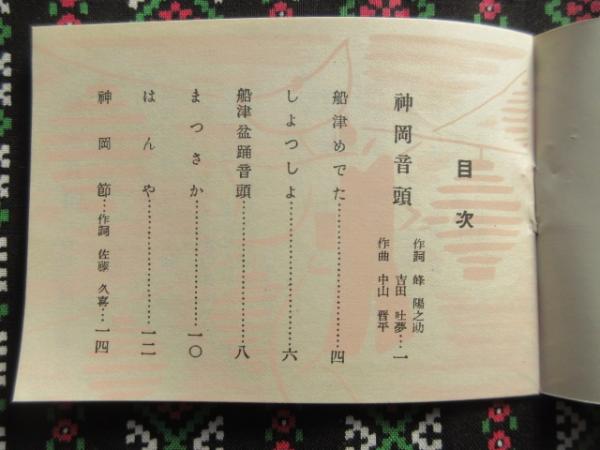 目次
神岡音頭
作詞 峰 陽之助
吉田 吐夢…一
作曲 中山 晋平
船津めでた…………四
しよつしよ…………六
船津盆踊音頭…………八
まつさか…………一〇
はんや…………一二
神岡節…作詞 佐藤 久喜…一四